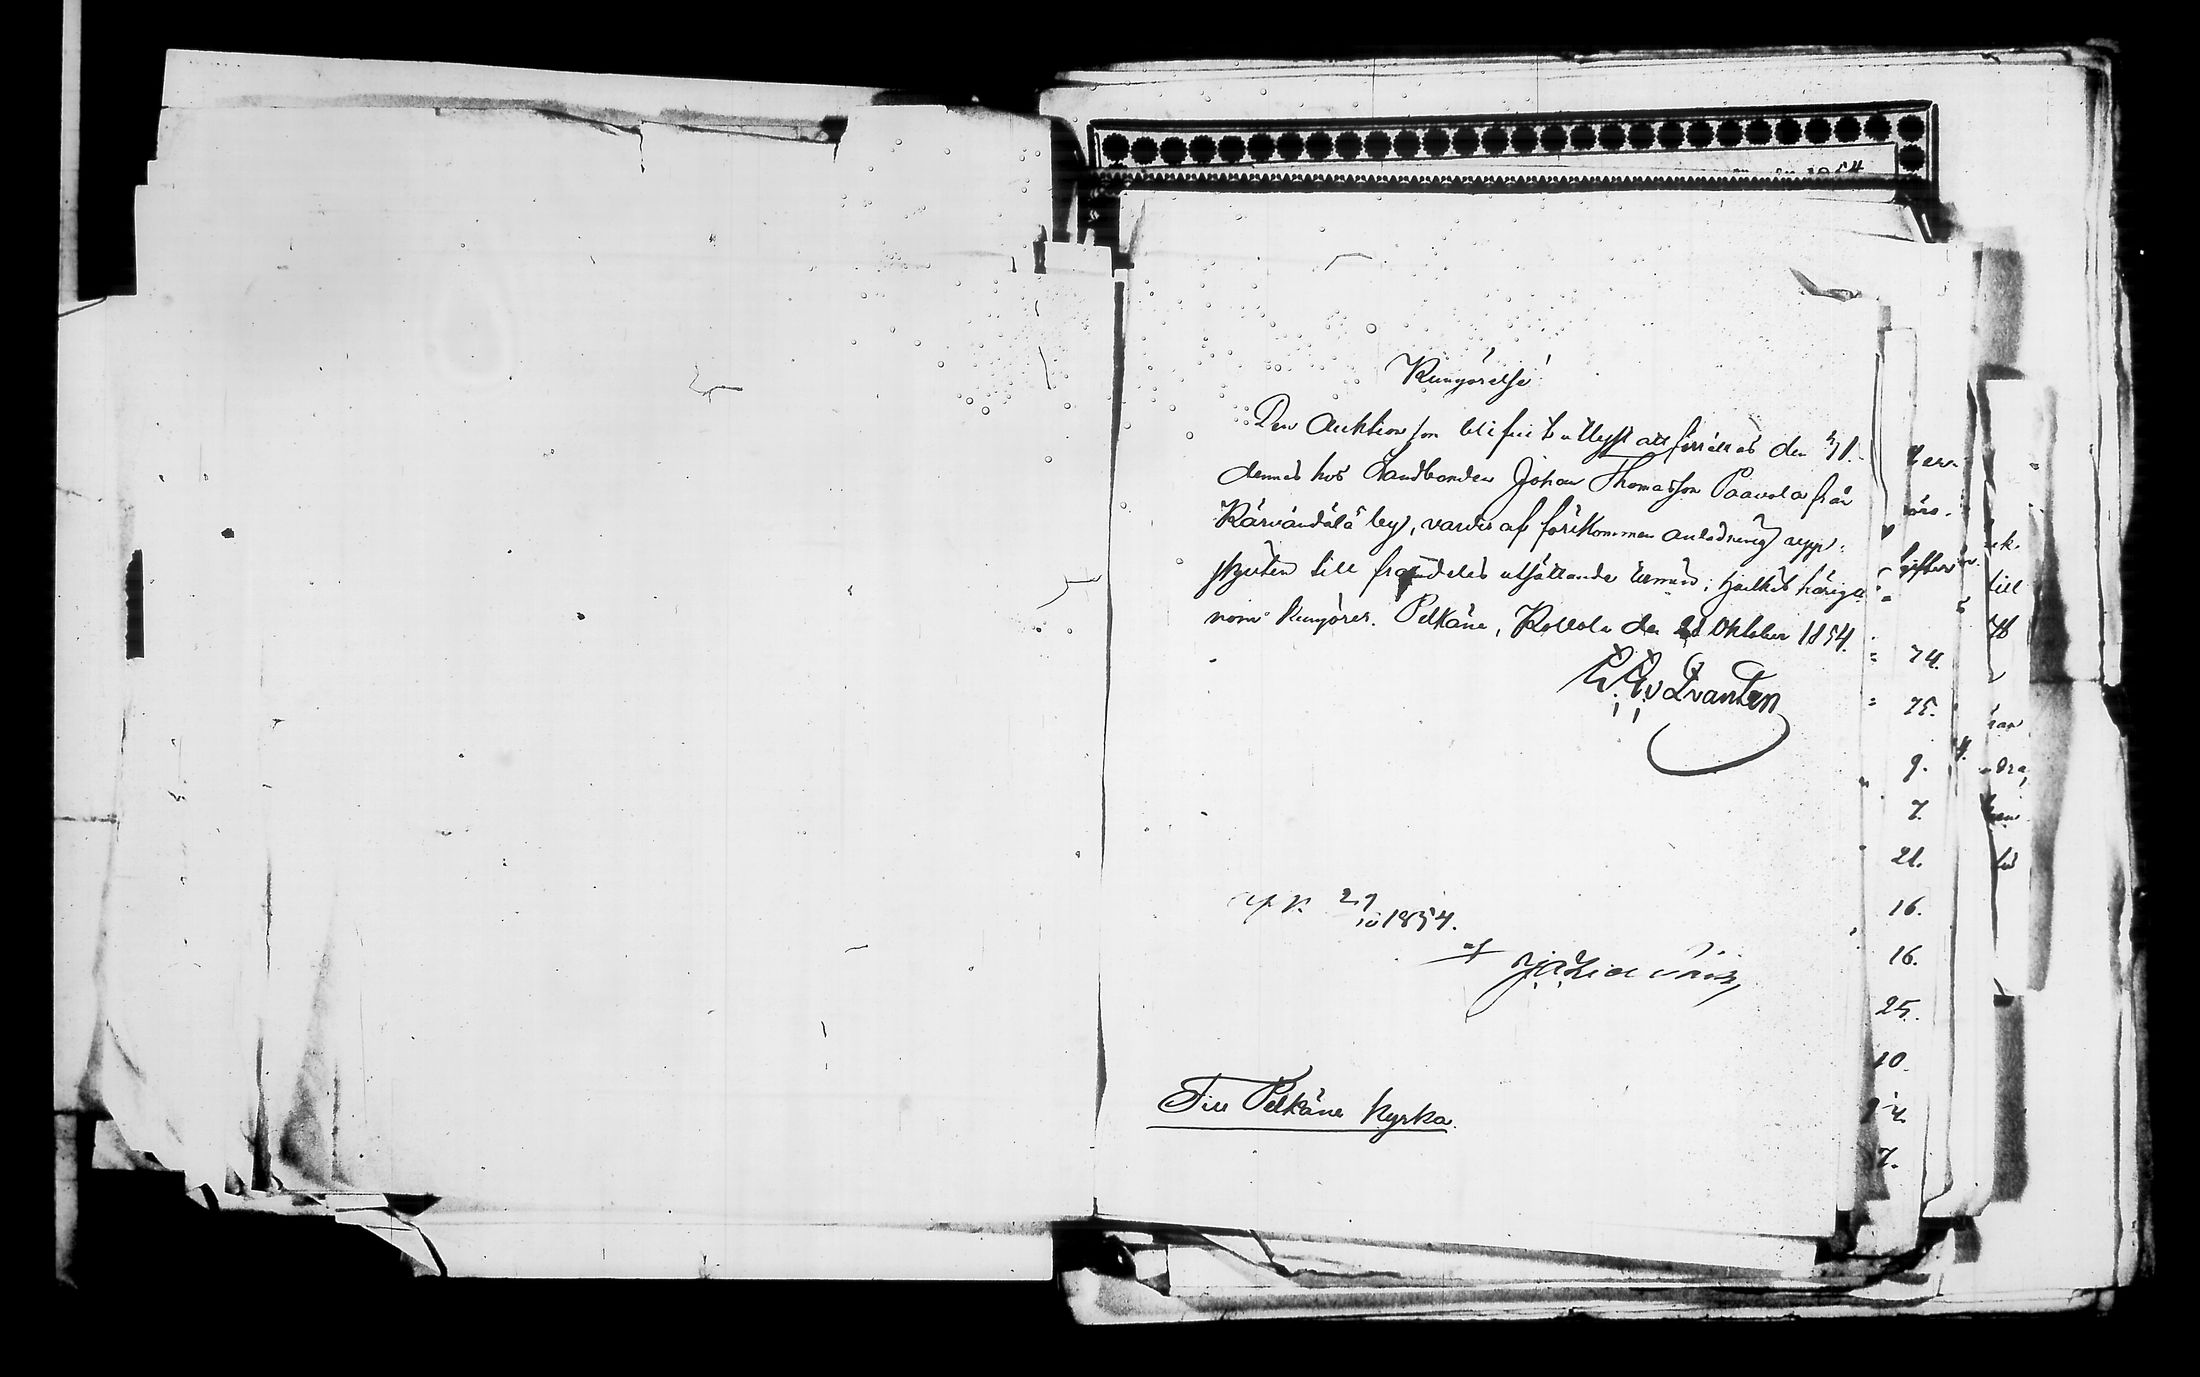 Kungörelse!
Den Auktion som blifvit utlyst att förrättas den 31.
dennes hos Landbonden Johan Thomasson Paavola från
Kärvändälä by, varder af förekommen anledning upp-
skjuten till framdeles utsättande termin; hvilket härige-
nom kungöres. Pelkäne, Kollola den Oktober 1854.
v Qvanten
29
10 1854.
af
Till Pelkäne Kyrka.
74.
75.
9.
7.
21.
16.
16.
25.
10.
7.
till